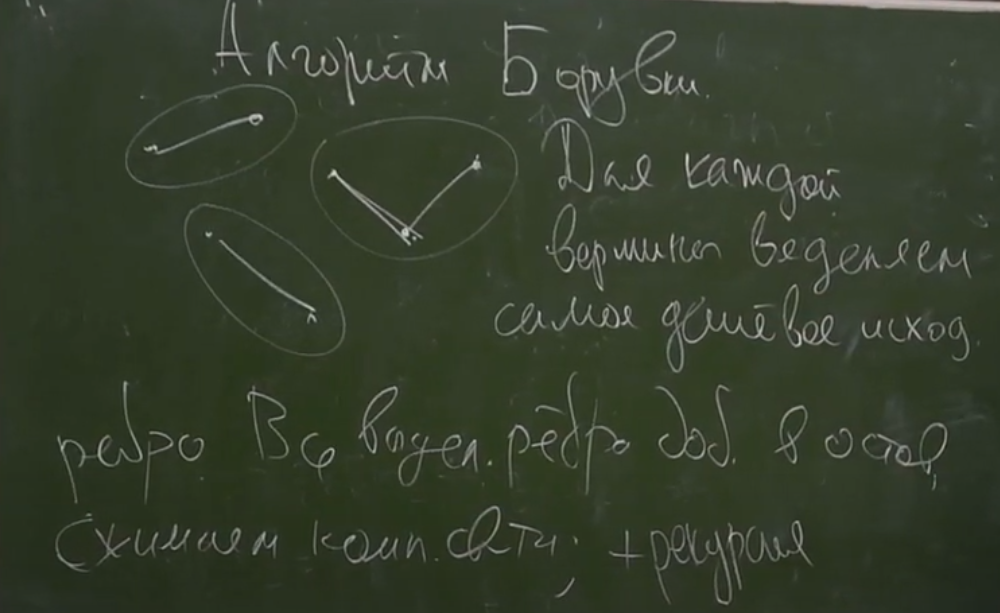 Алгоритм Борувки.
Для каждой
вершины выделяем
самое дешёвое исход.
ребро. Все выдел. рёбра доб. в остов,
Сжимаем комп. св-ти, + рекурсия